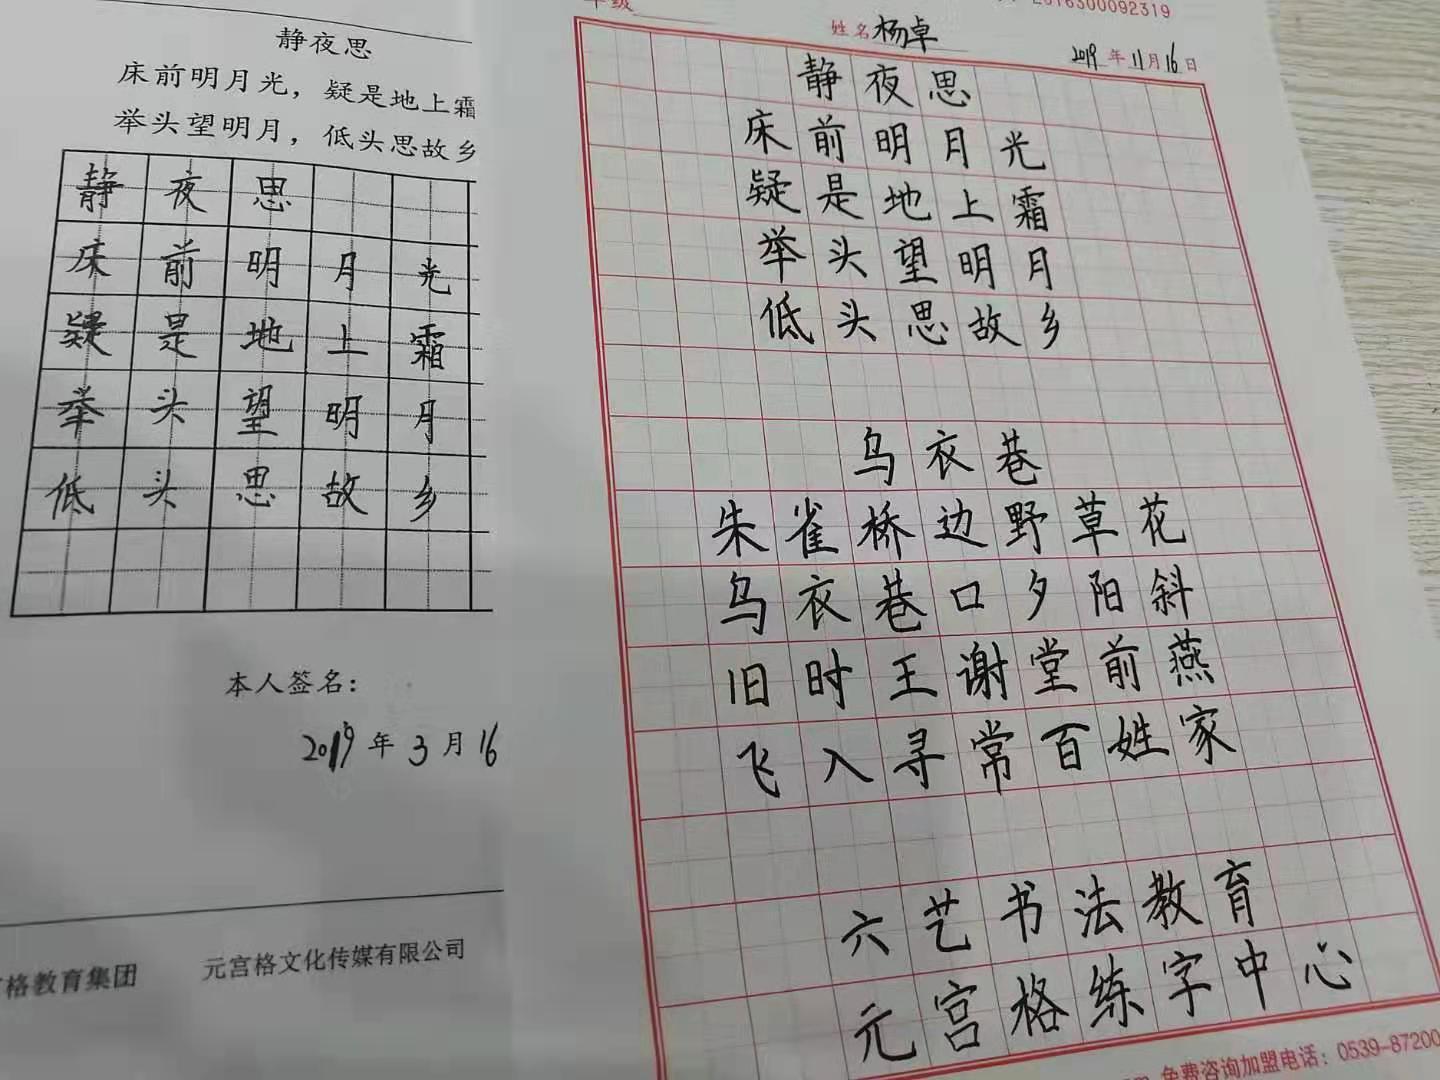 静夜思
床前明月光，疑是地上霜
举头望明月，低头思故乡
静夜思
床前明月光
疑是地上霜
举头望明月
低头思故乡
本人签名：
2019年3月16
格教育集团
元宫格文化传媒有限公司
2016300092319
年级
姓名 杨卓
2019年11月16日
静夜思
床前明月光
疑是地上霜
举头望明月
低头思故乡
乌衣巷
朱雀桥边野草花
乌衣巷口夕阳斜
旧时王谢堂前燕
飞入寻常百姓家
六艺书法教育
元宫格练字中心
免费咨询加盟电话：0539-87200